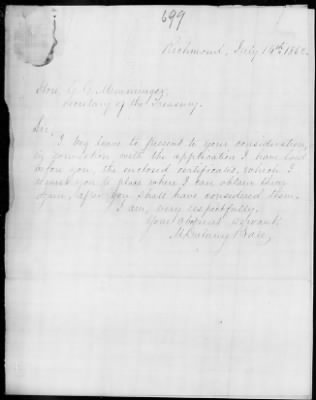 699
Richmond, July 14th 1862.
Hon. C. G. Memminger,
Secretary of the Treasury.
Sir,
I beg leave to present to your consideration,
in connection with the application I have laid
before you, the enclosed certificates, which I
request you to place where I can obtain them
again, after you shall have considered them.
I am, very respectfully,
Your obedient servant